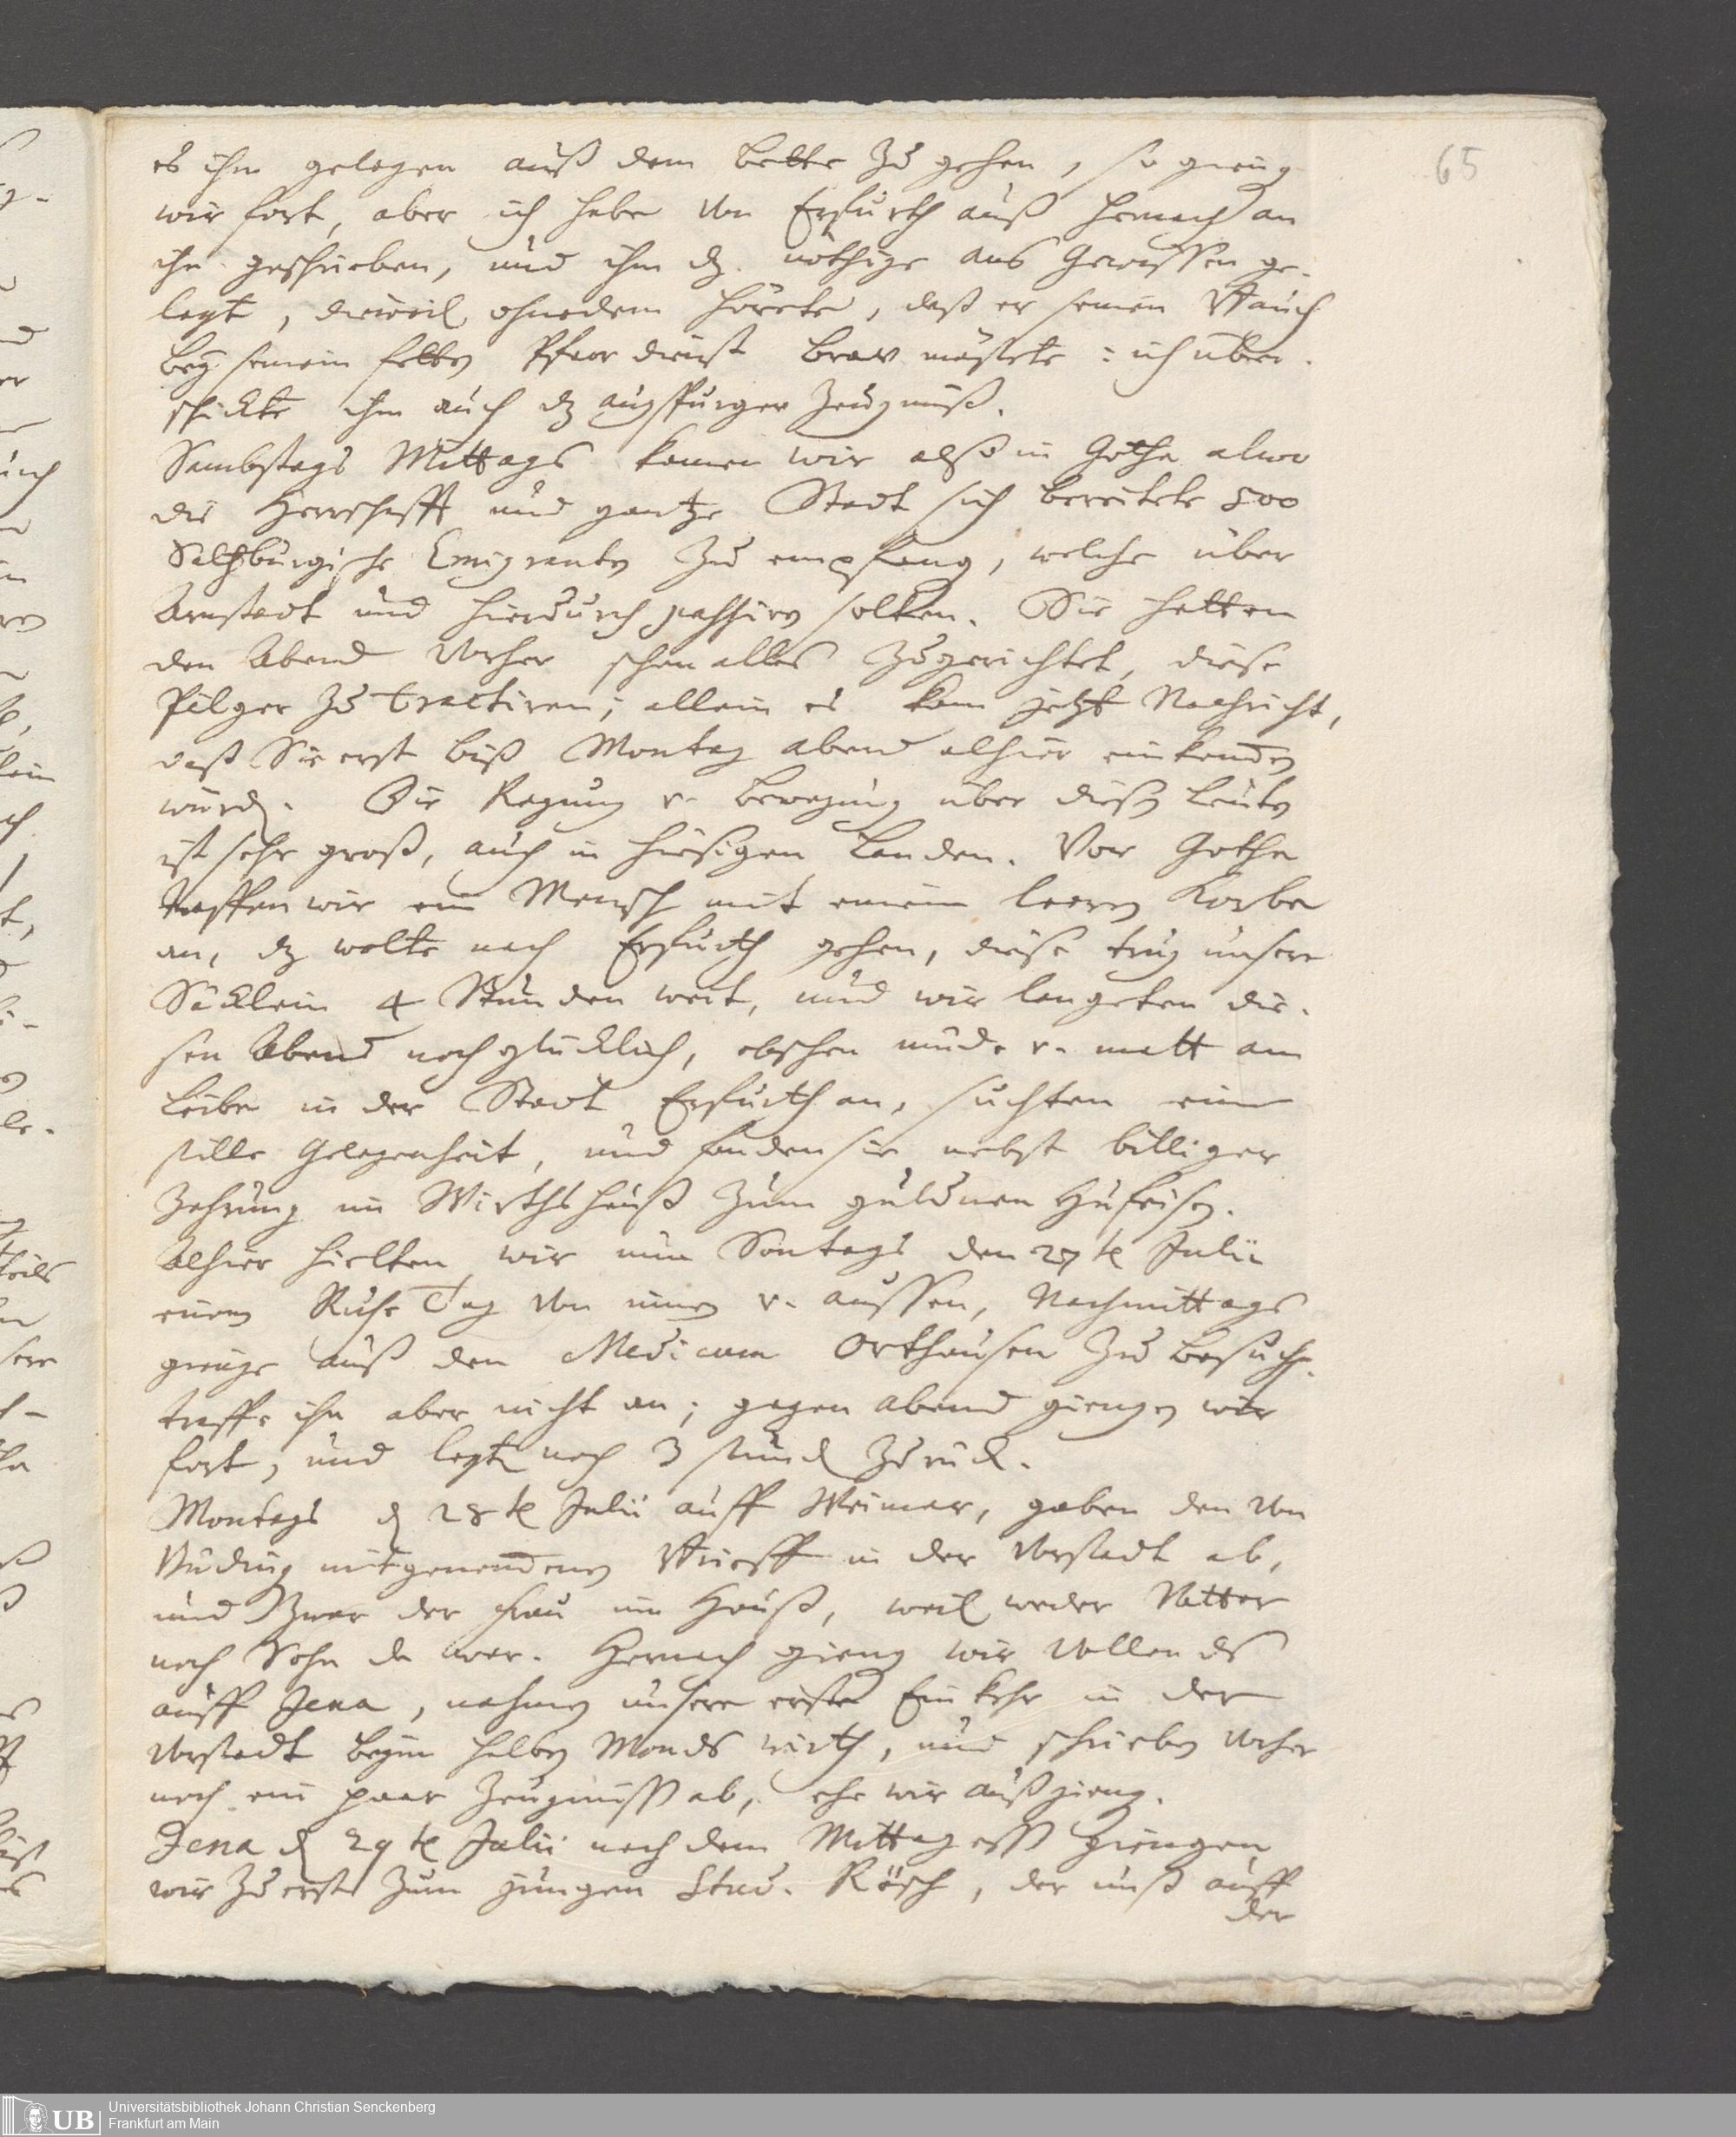 65
es ihm gelegen auß dem bette zu gehen, so gieng
wir fort, aber ich habe von Erfurth auß hernach an
ihn geschrieben, und ihm dz nöthige ans Gewissen ge-
legt, dieweil ohnedem hörete, daß er seinen Bauch
bey seinem fetten Pfarrdienst brav mästete: ich über-
schickte ihm auch dz augspurger Zeugnuß.
Sambstags Mittags kamen wir also in Gotha alwo
die Herrschafft und gantze Stadt sich bereitete 800
Saltzburgische Emigranten zu empfang, welche über
Arnstadt und hierdurch passiren solten. Sie hatten
den Abend vorher schon alles zugerichtet, diese
Pilger zu tractiren; allein es kam jetzt Nachricht,
daß Sie erst biß Montag abend alhier einkom̅en
würd. Die Regung u. bewegung über diesen leuten
ist sehr groß, auch in hiesigen Landen. Vor Gotha
traffen wir ein Mensch mit einem leeren Korbe
an, dz wolte nach Erfurth gehen, diese trug unsere
Säcklein 4 Stunden weit, und wir langeten die-
sen Abend noch glücklich, obschon müde u. matt am
Leibe in der Stadt Erfurth an, suchten eine
stille Gelegenheit, und fanden sie nebst billiger
Zehrung im Wirthshauß zum güldnen Hufeisen.
Alhier hielten wir nun Sontags den 27te Julii
einen Ruhe Tag von innen u. aussen, Nachmittags
gienge auß den Medicum Orthausen zu besuchen.
traffe ihn aber nicht an; gegen abend giengen wir
fort, und legten noch 3 stund zurück.
Montags d 28te Julii auff Weimar, gaben den von
Büding mitgenom̅enen Brieff in der Vorstadt ab,
und zwar der Frau im Hauß, weil weder Vatter
noch Sohn da war. Hernach gieng wir vollends
auff Jena, nahmen unsere erste Einkehr in der
Vorstadt beym halben Monds wirth, und schrieben vorher
noch ein paar Zeugnuss ab, ehe wir außgieng.
Jena d 29te Julii nach dem Mittagess giengen
wir zu erst zum jungen Stud. Rösch, der unß auff
der
UB
Universitätsbibliothek Johann Christian Senckenberg
Frankfurt am Main